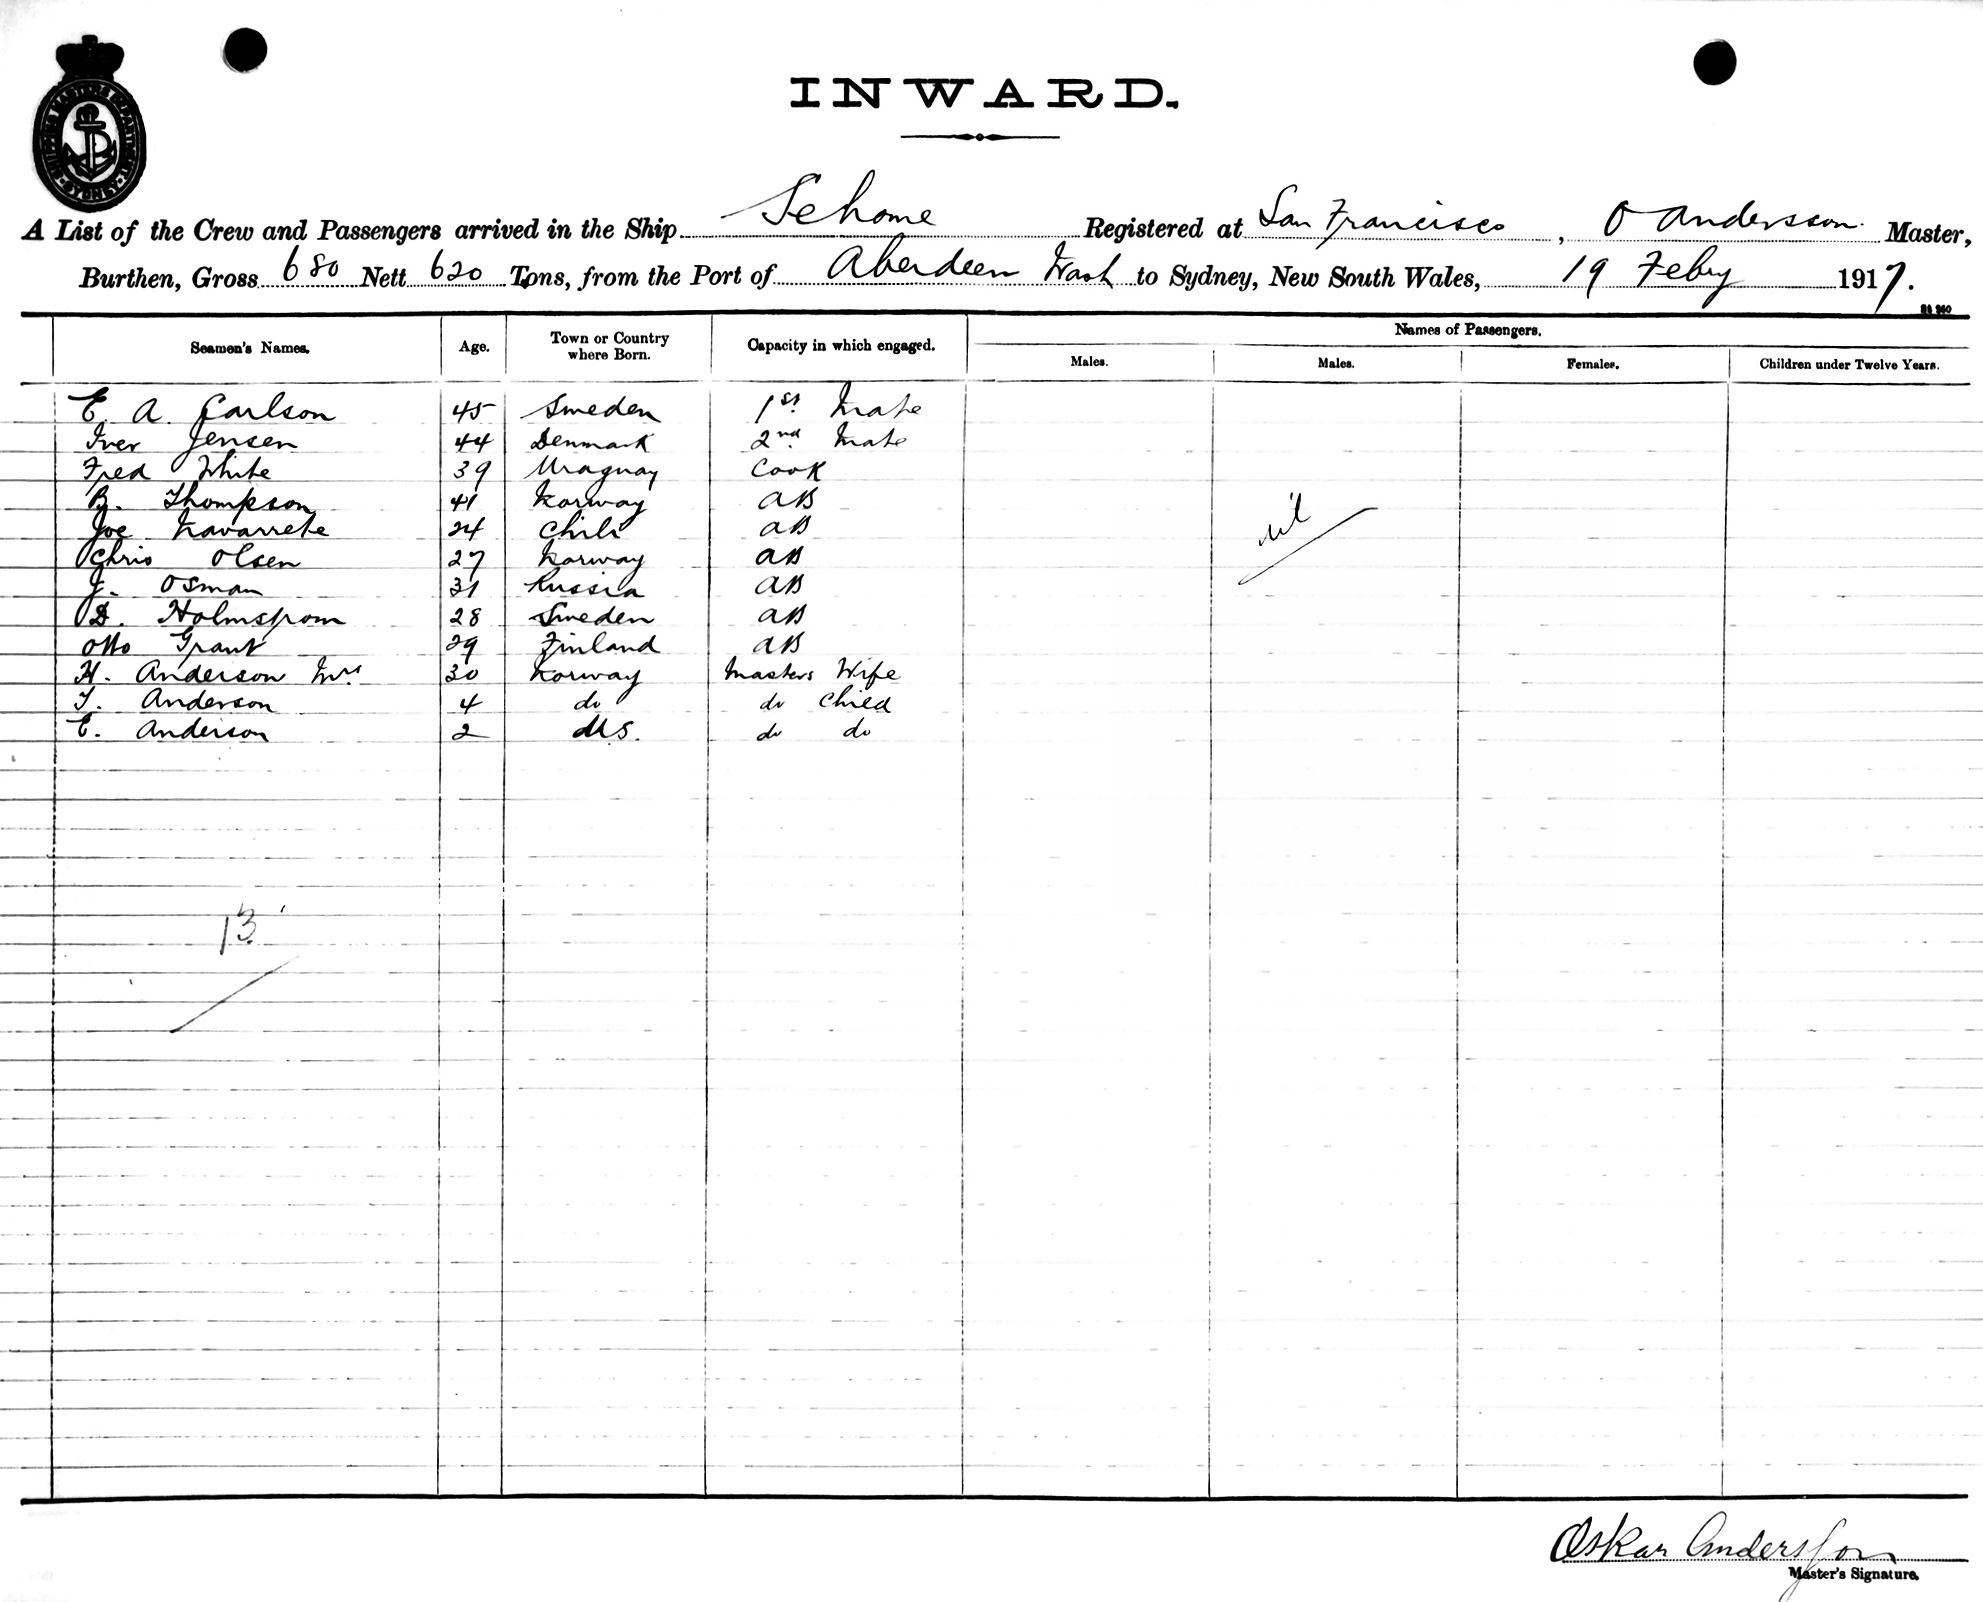 SHIPPING MASTERS DEPARTMENT
SYDNEY
INWARD.
A List of the Crew and Passengers arrived in the Ship Sehome Registered at San Francisco, O Andersson Master,
Burthen, Gross 680 Nett 620 Tons, from the Port of Aberdeen Wash to Sydney, New South Wales, 19 Feby 1917.
Names of Passengers.
Seamen's Names. Age. Town or Country where Born. Capacity in which engaged. Males. Males. Females. Children under Twelve Years.
E. A. Carlson 45 Sweden 1st Mate
Iver Jensen 44 Denmark 2nd Mate
Fred White 39 Uraguay Cook
B. Thompson 41 Norway AB
Joe Navarrete 24 Chili AB
Chris Olsen 27 Norway AB
J. Osman 31 Russia AB
D. Holmstrom 28 Sweden AB
Otto Grant 29 Finland AB
H. Anderson Mrs 30 Norway Masters Wife
T. Anderson 4 do do Child
E. Anderson 2 U.S. do do
nil
13
Oskar Andersson
Master's Signature.